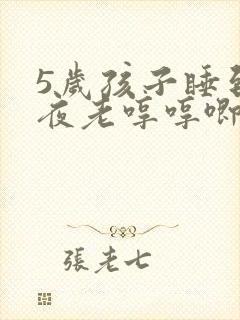 5歲孩子睡到
夜老哼哼唧
張老七